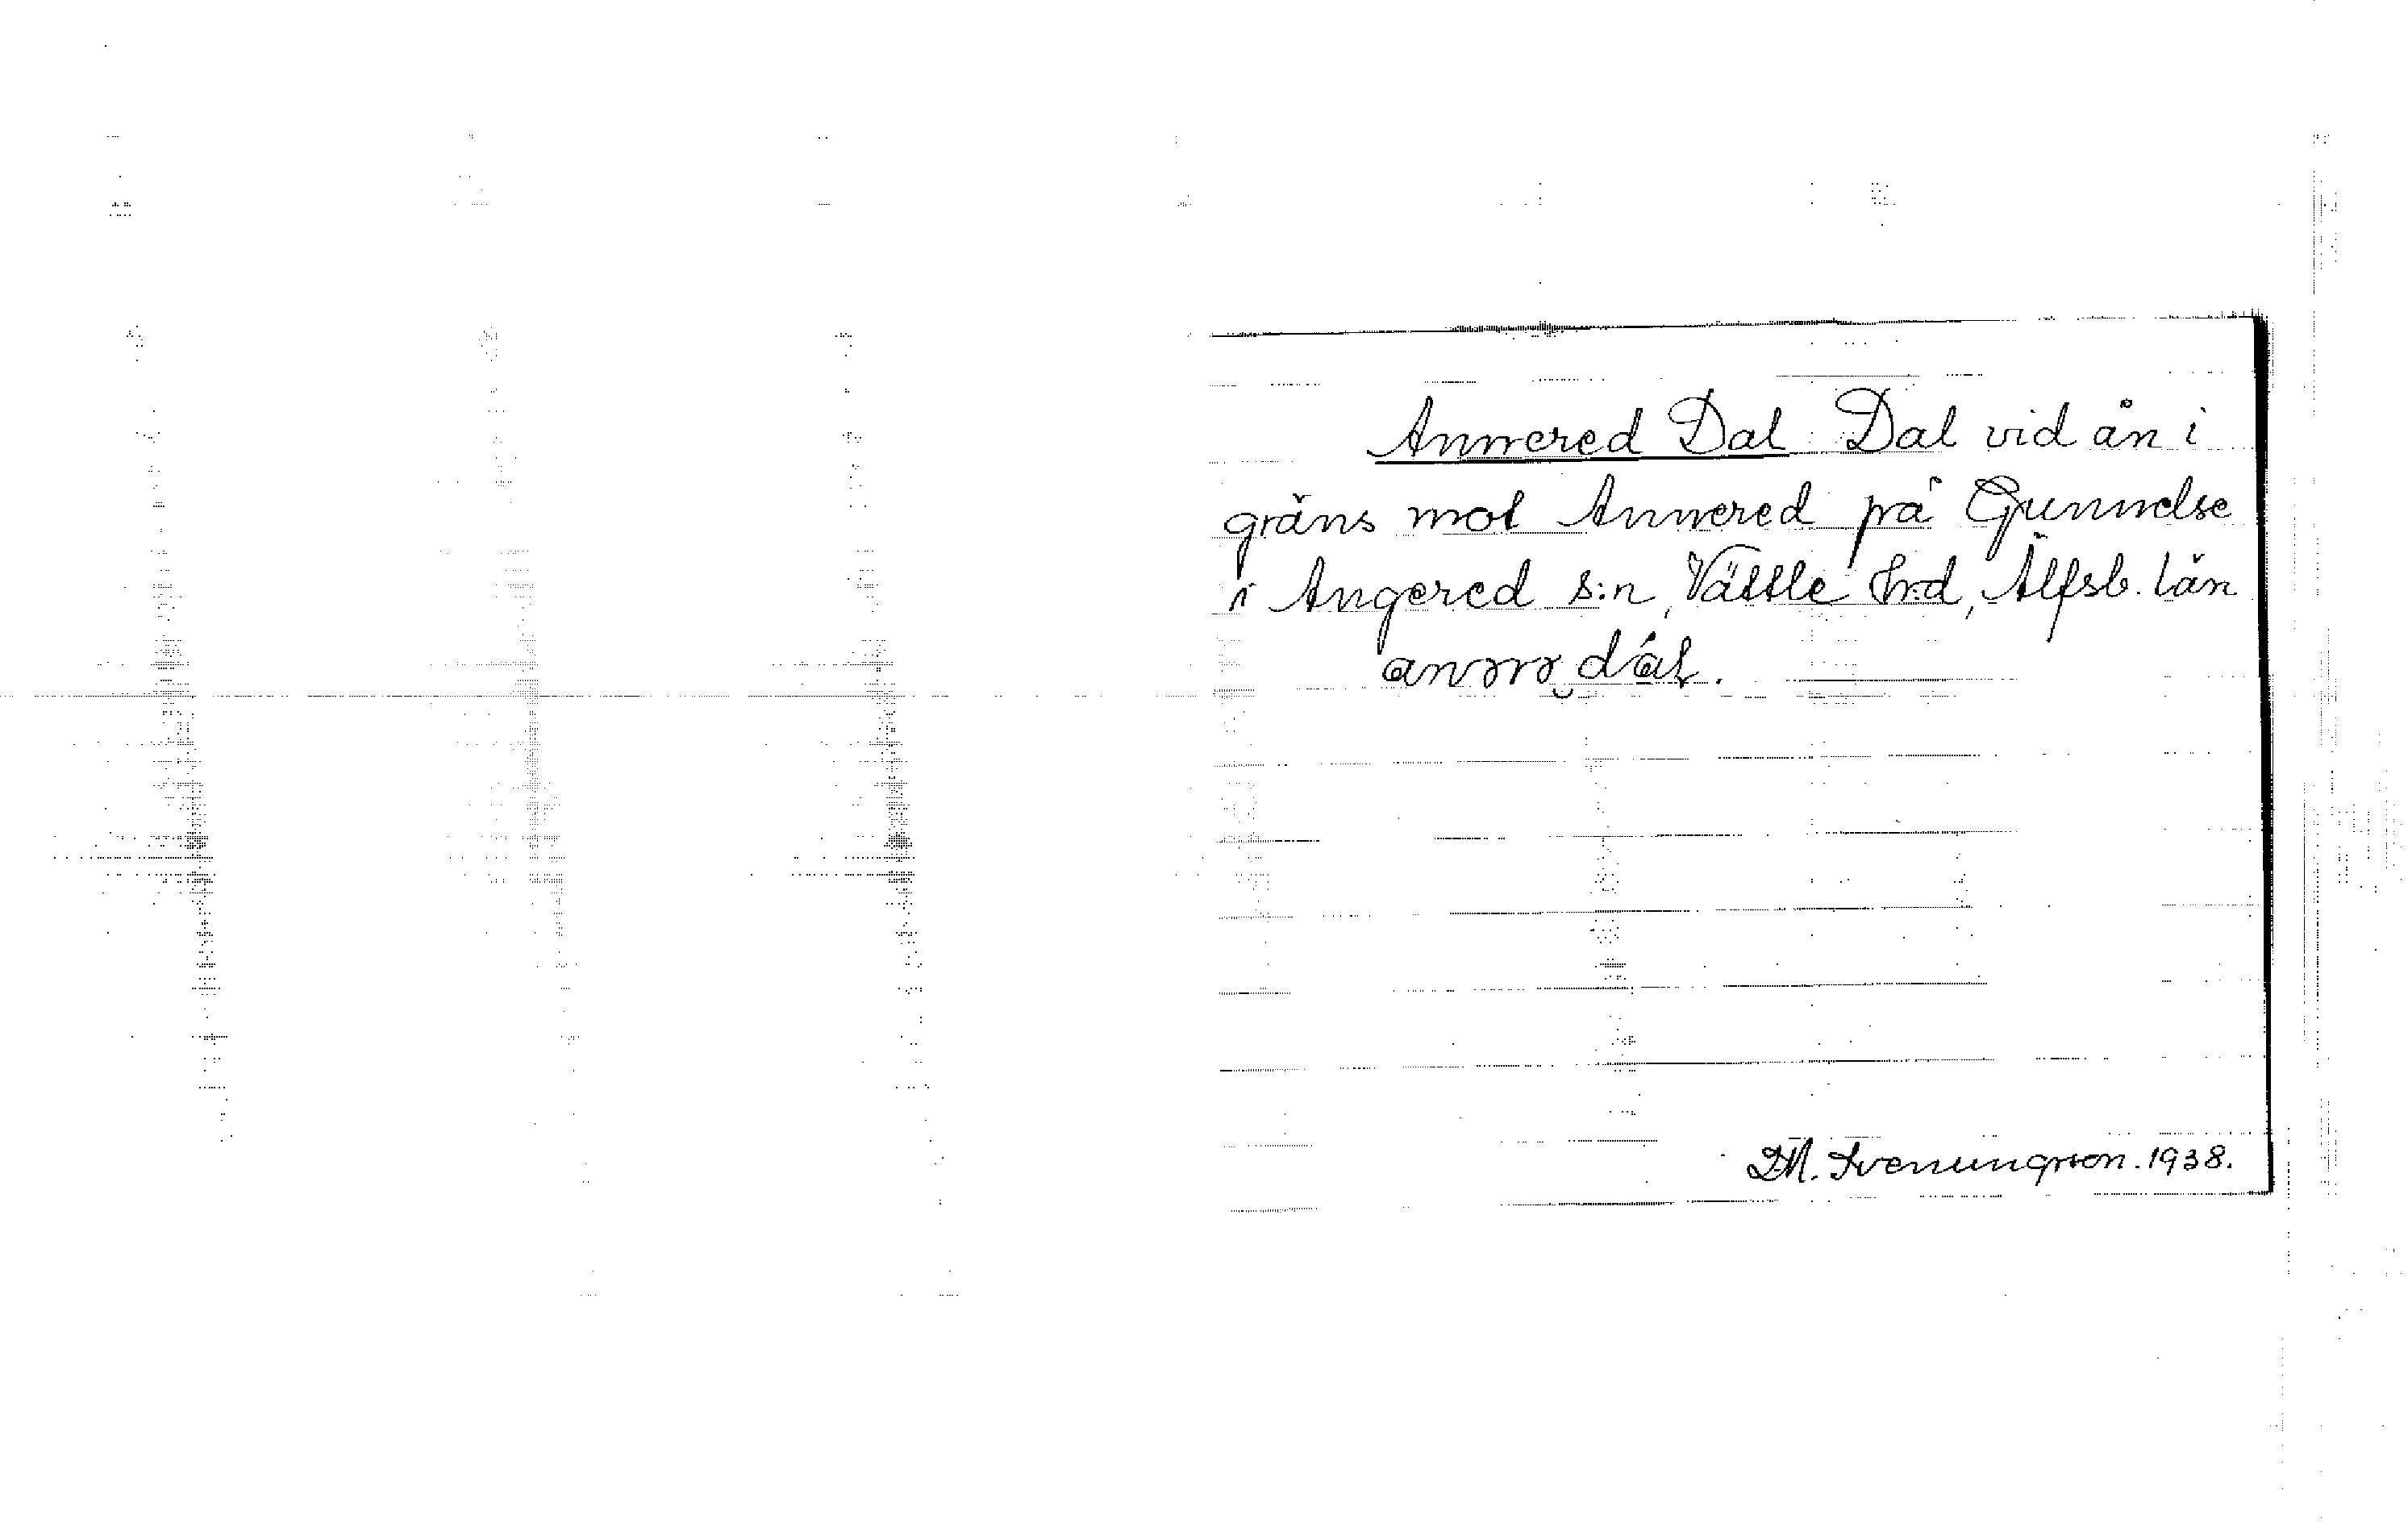 Annered Dal Dal vid ån i
gräns mot Annered på Gunnelse
i Angered s:n, Vättle hrd, Älfsb. län
D.M. Svenungsson. 1938.